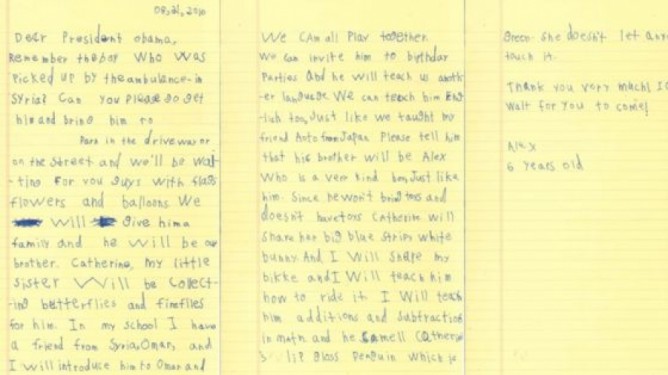 08,21,2016
Dear President obama,
Remember the boy who was
picked up by the ambulance in
Syria? Can you please go get
him and bring him to
Park in the driveway or
on the street and we'll be wai-
-ting for you guys with flags
flowers and balloons. We
will give him a
family and he will be our
brother. Catherine, my little
sister will be collect-
-ing butterflies and fireflies
for him. In my school I have
a friend from Syria, Omar, and
I will introduce him to Omar and
We can all play together.
We can invite him to birthday
parties and he will teach us anoth-
-er language. We can teach him Eng-
lish too, Just like we taught my
friend Aoto from Japan. Please tell him
that his brother will be Alex
who is a very kind boy, Just like
him. Since he won't bring toys and
doesn't have toys Catherine will
share her big blue stripy white
bunny. And I will share my
bikke and I will teach him
how to ride it. I will teach
him additions and subtractions
in math and he smell Catherine
lip gloss penguin which is
green. She doesn't let any
touch it.
Thank you very much! I
wait for you to come!
Alex
6 years old